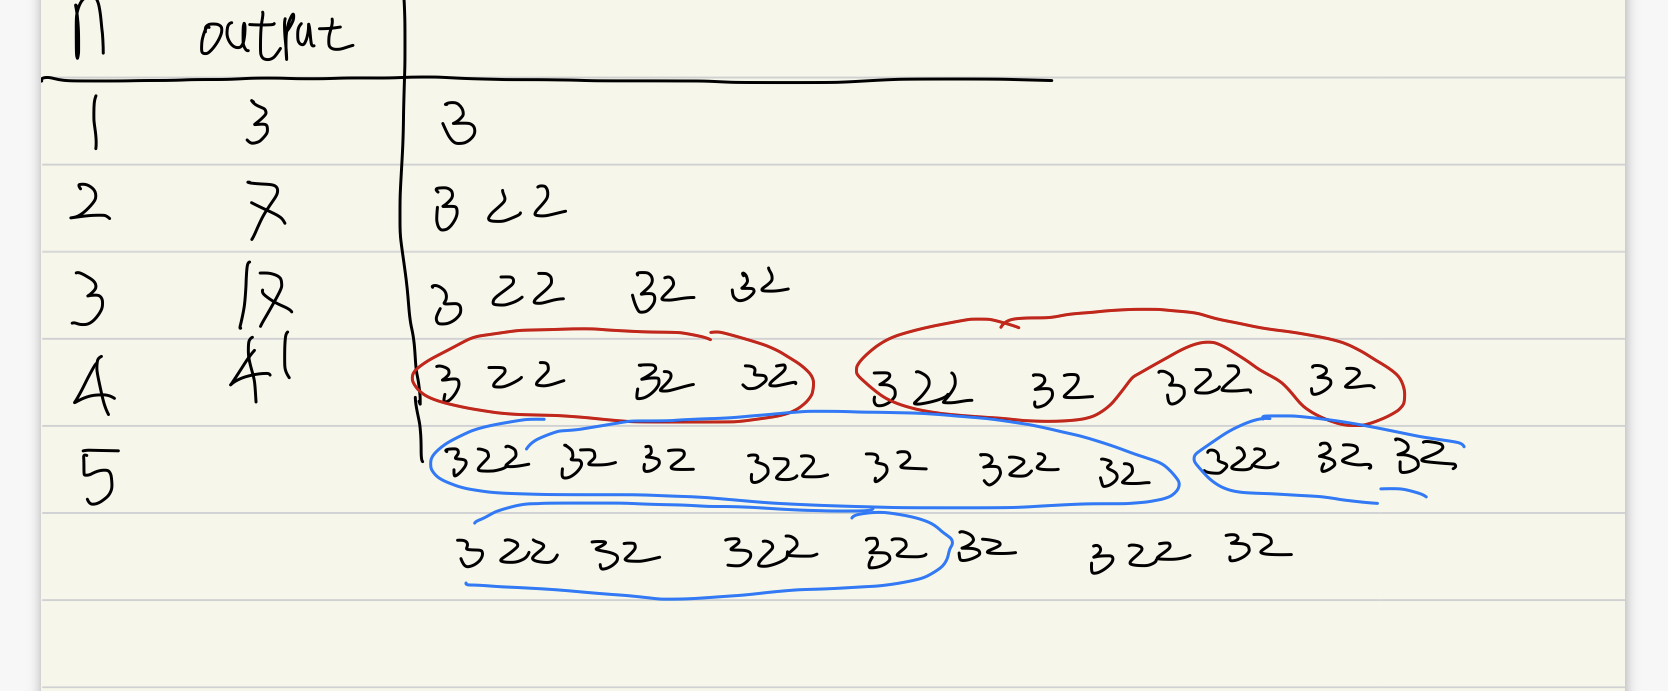 n output
1 3 3
2 7 3 22
3 17 3 22 32 32
4 41 3 22 32 32 322 32 322 32
5 322 32 32 322 32 322 32 322 32 32
322 32 322 32 32 322 32